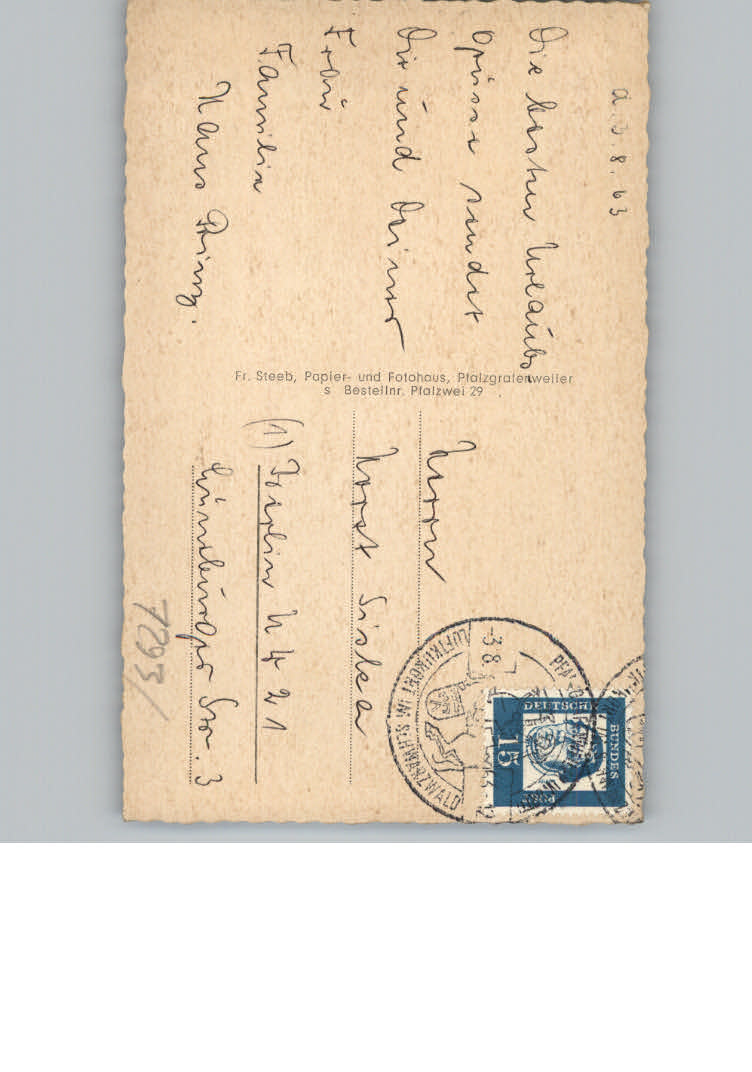 d. 3.8.63
Die besten Urlaubs
grüsse sendet
Dir und Deiner
Frau
Familie
Hans
Fr. Steeb, Papier- und Fotohaus, Pfalzgrafenweiler
s Bestellnr. Pfalzwei 29
Herrn
Horst
(1) Berlin N 4 21
Lüneburger Str. 3
7293/
-3.8.
LUFTKURORT IM SCHWARZWALD
DEUTSCHE
BUNDES
POST
15